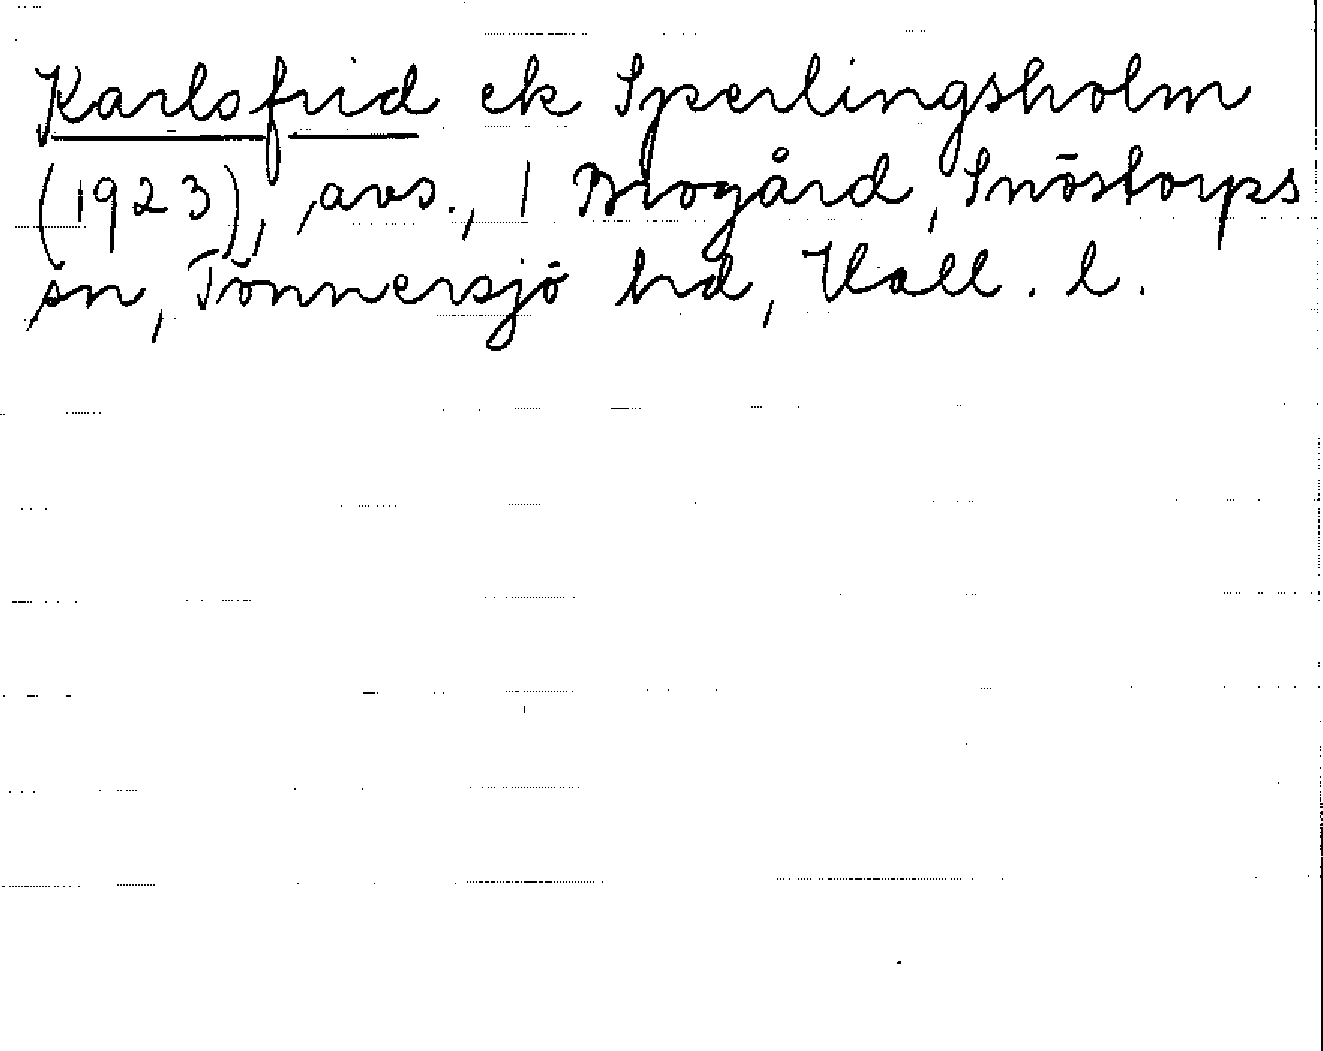 Karlsfrid ek Sperlingsholm
(1923), avs., 1 Brogård, Snöstorps
sn, Tönnersjö hd, Hall. l.